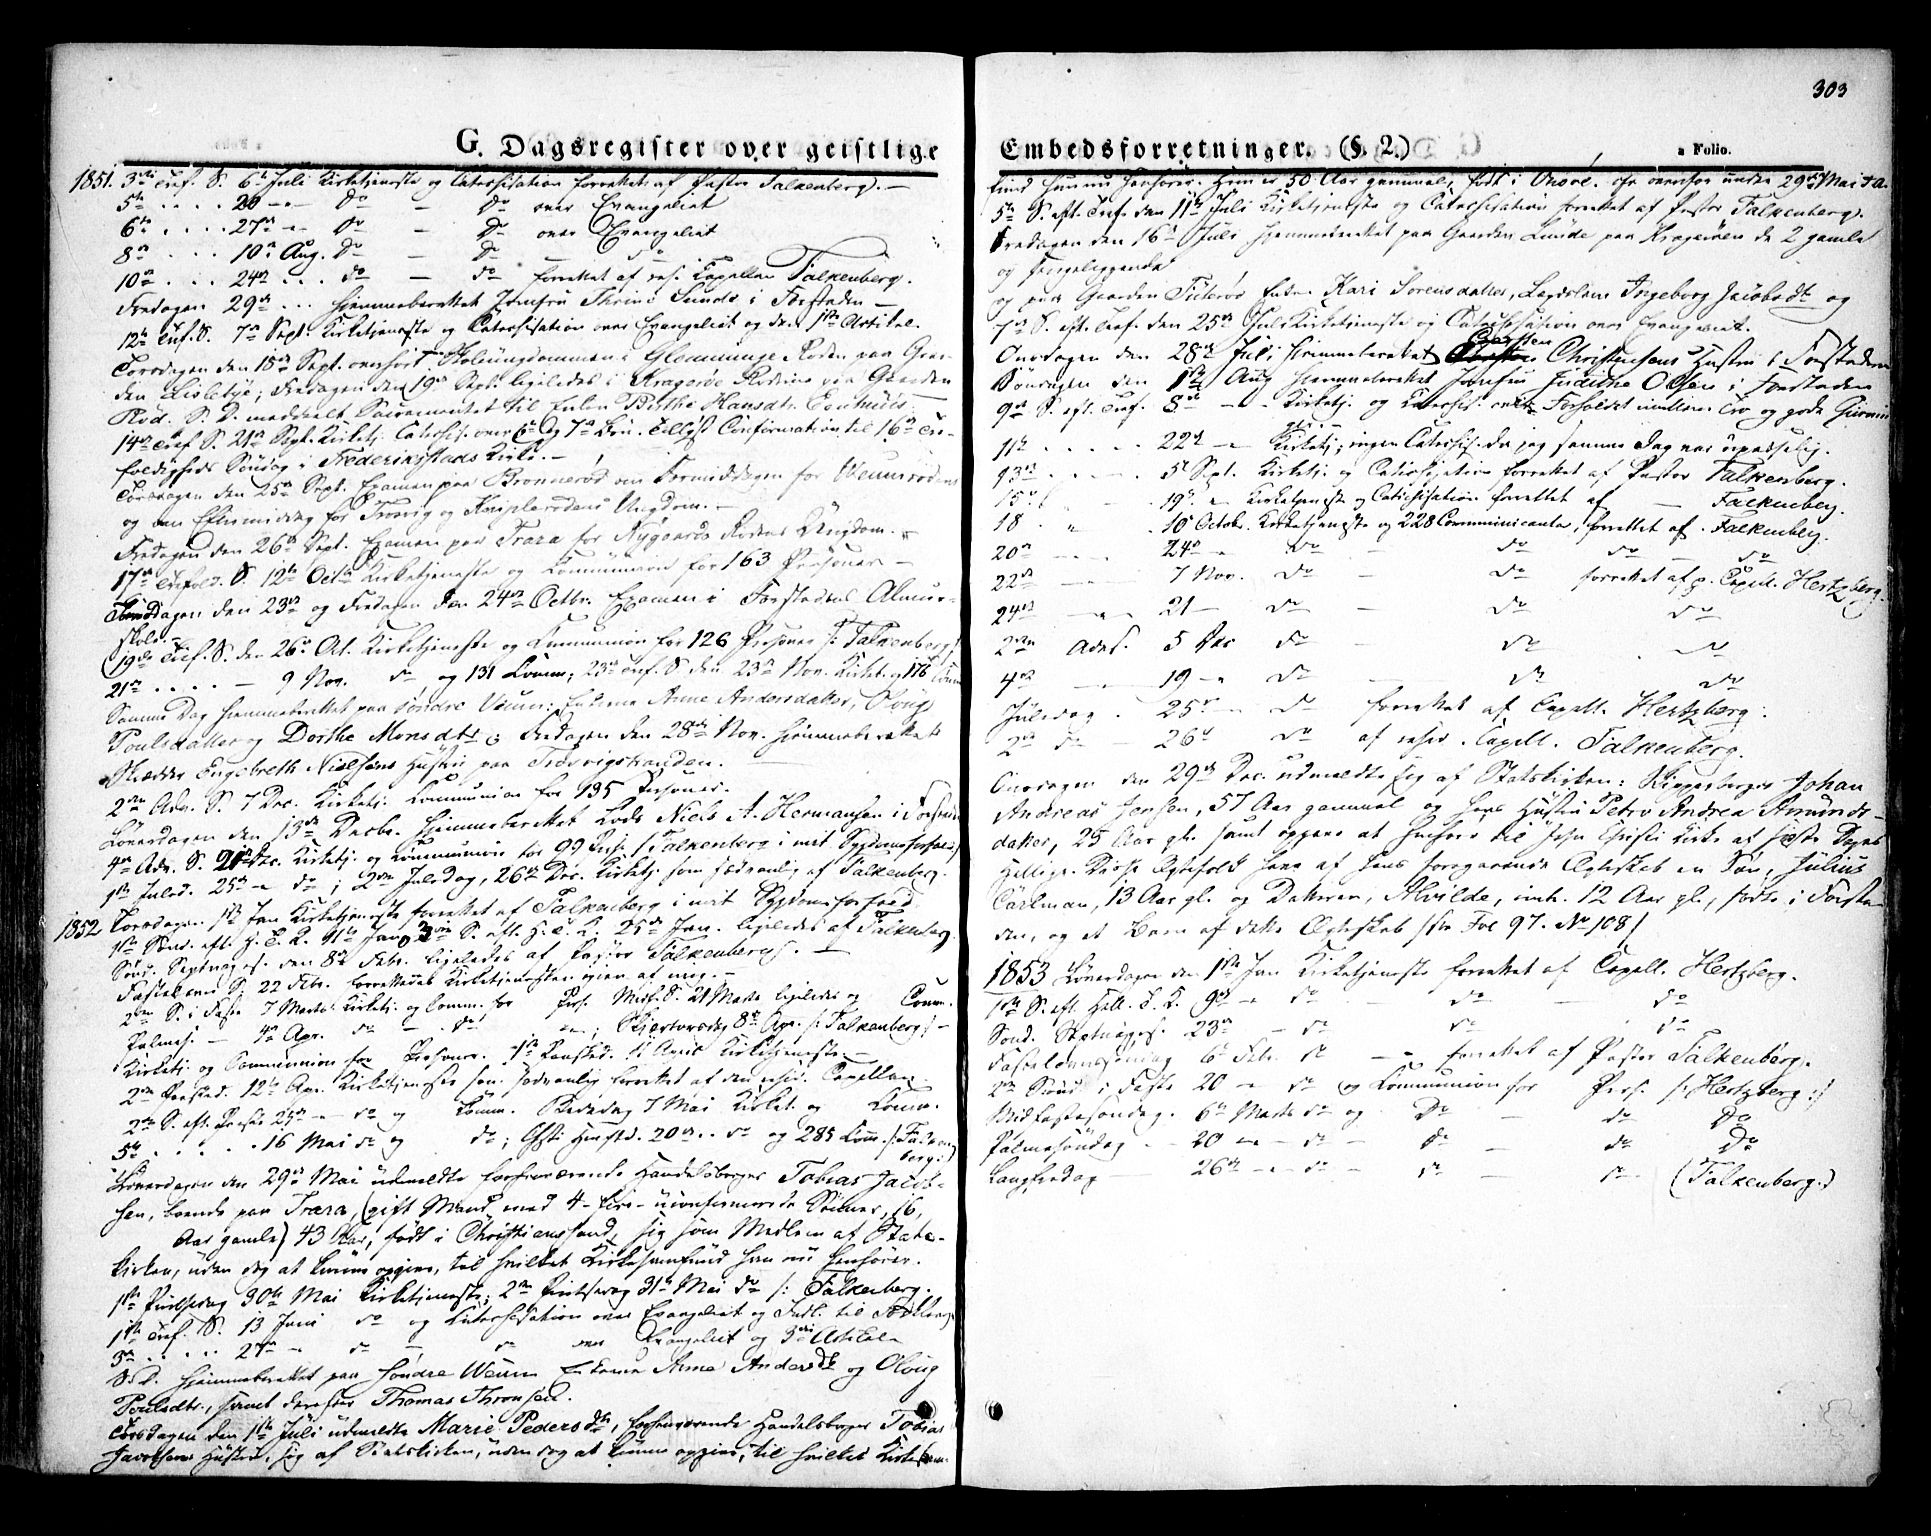 303
G. Dagsregister over geistlige Embedsforretninger. (§. 2.)
a Folio.
1851. 3die Tref. S. 6te Juli Kirketjeneste og Catechisation forrettet af Pastor Falkenberg. —
5te . . . . 20 — — Do — Do over Evangeliet
6te . . . . 27de — Do — Do over Evangeliet
8de . . . 10de Aug. Do — Do — Do
10de . . . 24de . . . do — do forrettet af res. Capellan Falkenberg.
Fredagen 29de . . . hjemmeberettet Jomfru Thrine Lunde i Forstaden —
12te Tref. S. 7de Sept. Kirketjeneste og Catechisation over Evangeliet og den 1ste Artikel.
Torsdagen den 18de Sept. overhørt Skoleungdommen i Glemminge Roden paa Gaar-
den Lisleby; Fredagen den 19de Sept. ligeledes i Kragerøe Rodene paa Gaarden
Rød. S. D. meddeelt Sacramentet til Enken Birthe Hansdt.
14de Tref. S. 21de Sept. Kirketj. Catechis. over 6te og 7de Bøn. Tillyst Confirmation til 16de Tre-
foldigheds Søndag i Frederiksstads Kirke. —
Torsdagen den 25de Sept. Examen paa Bronnerød om Formiddagen for
og om Eftermiddag for Trosvig og Kniplerodens Ungdom. —
Fredagen den 26de Sept. Examen paa Trara for Nygaards Rodens Ungdom. —
17de Trefold. S. 12te Octbr Kirketjeneste og Communion for 163 Personer —
Torsdagen den 23de og Fredagen den 24de Octbr. Examen i Forstadens Almue-
skole. —
19de Tref. S. den 26de Oct. Kirketjeneste og Communion for 126 Personer /: Falkenberg :/
21de . . . . — 9 Nov. do og 131 Comm; 23de Tref. S. den 23de Nov. Kirket. og 176 Comm
Samme Dag hjemmeberettet paa søndre Veum: Enkerne Anne Andersdatter, Oloug
Poulsdatter og Dorthe Monsdtr; Fredagen den 28de Nov. hjemmeberettet
Skrædder Engebreth Nielsens Hustru paa Trosvigstranden.
2den Adv. S. 7 Dec. Kirketj. Communion for 135 Personer.
Løverdagen den 13de Decbr. hjemmeberettet Lods Niels A. Hermansen i Forstad
4de Adv. S. 21de Dec. Kirketj. og Communion for 99 Pers. /: Falkenberg i mit Sygdomsforfald :/
1ste Juled. 25de — do; 2den Juledag, 26de Dec. Kirketj. som sædvanlig af Falkenberg.
1852. Torsdagen 1ste Jan Kirketjeneste forrettet af Falkenberg i mit Sygdomsforfald.
1ste Sønd. eft. H. T. K. 11te Jan, 3die S. eft. H. T. K. 25de Jan. ligeledes af Falkenberg.
Sønd. Septuages. den 8de Febr. ligeledes af Pastor Falkenberg. —
Fastelavns S. 22 Febr. forrettedes Kirketjenesten igien af mig. —
2den S. i Faste 7 Marts: Kirketj. og Comm. for Pers. Midf. S. 21 Marts ligeledes og Comm.
Palmes. — 4de Apr. do — do. —; Skjertorsdag 8de Apr. /: Falkenberg :/ —
Kirketj. og Communion for Personer. 1ste Paasked. 11 April Kirketjeneste. —
2den Paasked. 12te Apr. Kirketjeneste som sædvanlig forrettet af den resid. Capellan.
2den S. eft. Paaske 25de — do og Comm. Bededag 7 Mai Kirket. og Comm.
5te . . . . . 16 Mai do og do; Chsti Hmfd. 20de . . do og 285 Com. /: Falken
berg :/
Løverdagen den 29de Mai udmeldte forhenværende Handelsborger Tobias Jacob-
sen, boende paa Trara, (gift Mand med 4 – fire – uconfirmerede Sønner, 16,
Aar gamle) 43 Aar, født i Christianssand, sig som Medlem af Stats-
kirken, uden dog at kunne opgive, til hvilket Kirkesamfund han nu henhører.
1ste Pintsedag 30te Mai Kirketjeneste; 2den Pintsedag 31te Mai do /: Falkenberg.
1ste Tref. S. 13 Juni do og Catechisation over Evangeliet og Indl. til
3de . . . . 27de — do — do over Evangeliet og 3die Artikel
S. D. hjemmeberettet paa søndre Veum Enkerne Anne Andersdtr og Oloug
Poulsdtr., samt dersteds Thomas Thronsen.
Torsdagen den 1ste Juli udmeldte Marie Pedersdtr, forhenværende Handelsborger Tobias
Jacobsens Hustru, sig af Statskirken, uden dog at kunne opgive, til hvilket Kirkesam-
fund hun nu henhører. Hun er 50 Aar gammel, født i Onsøe. cfr ovenfor under 29de Mai d. A.
5te S. eft. Tref. den 11te Juli Kirketjeneste og Catechisation forrettet af Pastor Falkenberg.
Fredagen den 16de Juli hjemmeberettet paa Gaarden Lunde paa Kragerøen de 2 gamle
og sengeliggende
og paa Gaarden Enken Kari Sorensdatter, Lægdslem Ingeborg Jacobsdtr og
7de S. eft. Tref. den 25de Juli Kirketjeneste og Catechisation over Evangeliet.
Onsdagen den 28de Juli hjemmeberettet Carsten Christensens Hustru i Forstaden
Søndagen den 1ste Aug hjemmeberettet Jomfru Judithe Olsen i Forstaden
9de S. eft. Tref. 8de — — Kirketj. og Catechis. over Forholdet imellem Tro og gode Gjerninger
11te . . . . 22de — Kirketj; ingen Catechis. da jeg samme Dag var upasselig.
13de . . . . 5te Sept. Kirketj. og Catechisation forrettet af Pastor Falkenberg.
15de . . . . 19de — Kirketjeneste og Catechisation forrettet af — Falkenberg.
18 . „ . 10 Octobr. Kirketjeneste og 228 Communicanter, forrettet af Falkenberg.
20de — — 24de — do — do do — do
22de — — 7 Nov. do — do forrettet af p. Capell. Hertzberg.
24de — — 21 — do — do do
2den Advt. 5 Dec do — do do
4de — 19 — do — do do
Juledag . 25de — do forrettet af Capell. Hertzberg.
2den do — 26de do af resid. Capell. Falkenberg.
Onsdagen den 29de Dec. udmeldte sig af Statskirken: Johan
Andreas Jensen, 57 Aar gammel og hans Hustru Petro Andrea Amunds-
datter, 25 Aar gl. samt opgave at henhøre til Jesu Christi Kirke af sidste Dages
Hellige. Disse Ægtefolk have af hans foregaaende Ægteskab en Søn, Julius
Carlman, 13 Aar gl. og Datteren, Alvilde, omtr. 12 Aar gl., fødte i Forsta-
den, og et Barn af dette Ægteskab /: see Fol 97. No 108 /
1853 Løverdagen den 1ste Jan Kirketjeneste forrettet af Capell. Hertzberg.
1ste S. eft. Hell. T. K. 9de — do — do — do
Sønd. Septuages. 23de — do — do — do
Fastelavnssøndag 6te Febr. do — — forrettet af Pastor Falkenberg.
2den Sønd i Faste 20 — do og Communion for Pers. /: Hertzberg :/
Midfastesøndag. 6te Marts do og Do — do Do
Palmesøndag — 20 — — do — do — do Do
Langfredag — 26de — — do — do — do — (Falkenberg.)